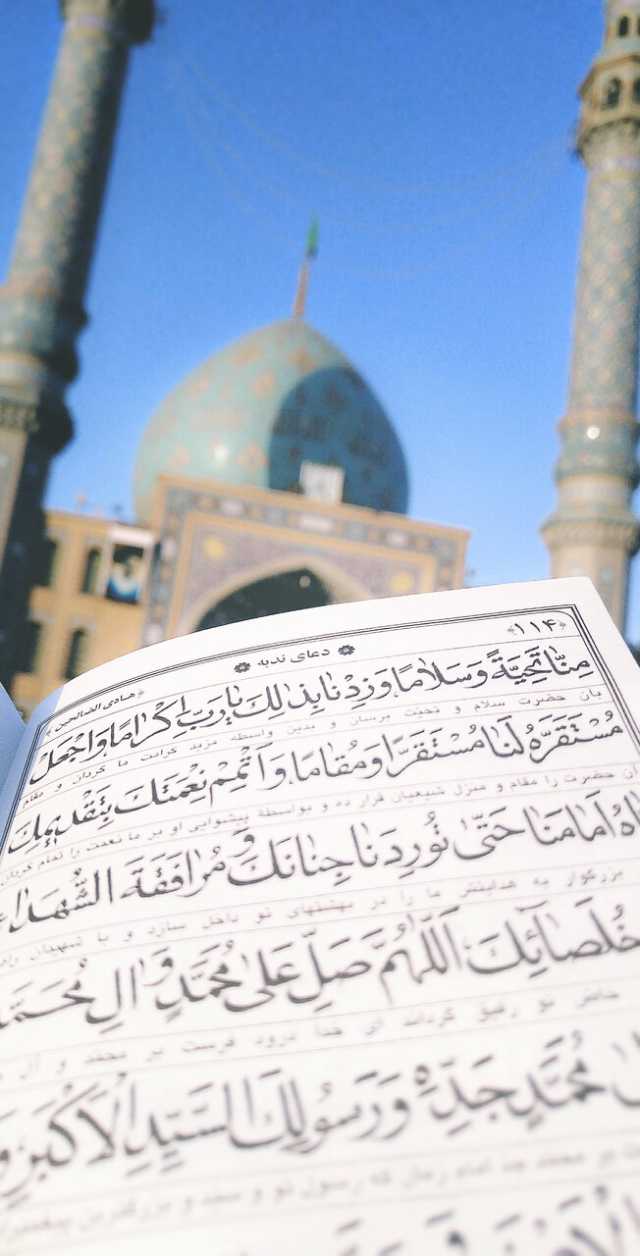 ﴿۱۱۴﴾
دعای ندبه
﴿هادی الضالحین﴾
مِنَّا تَحِيَّةً وَسَلَامًا وَزِدْنَا بِذٰلِكَ يَارَبِّ اِكْرَامًا وَاجْعَلْ
بان حضرت سلام و تحیت برسان و بدین واسطه مزید کرامت ما گردان و مقام
مُسْتَقَرَّهُ لَنَا مُسْتَقَرًّا وَمُقَامًا وَاَتْمِمْ نِعْمَتَكَ بِتَقْدِيمِكَ
آن حضرت را مقام و منزل شیعیان قرار ده و بواسطهٔ پیشوایی او بر ما نعمت را تمام گردان
اَمَامَنَا حَتّٰى تُورِدَنَا جِنَانَكَ وَمُرَافَقَةَ الشُّهَدَاءِ
بزرگوار به هدایتش ما را در بهشتهای تو داخل سازد و با شهیدان راه
خُلَصَائِكَ اَللّٰهُمَّ صَلِّ عَلٰى مُحَمَّدٍ وَاٰلِ مُحَمَّدٍ
خاص تو رفیق گرداند ای خدا درود فرست بر محمد و آل
مُحَمَّدٍ جَدِّهِ وَرَسُولِكَ السَّيِّدِ الْاَكْبَرِ وَ
بر محمد جد امام زمان که رسول تو و سید و بزرگترین پیغمبران